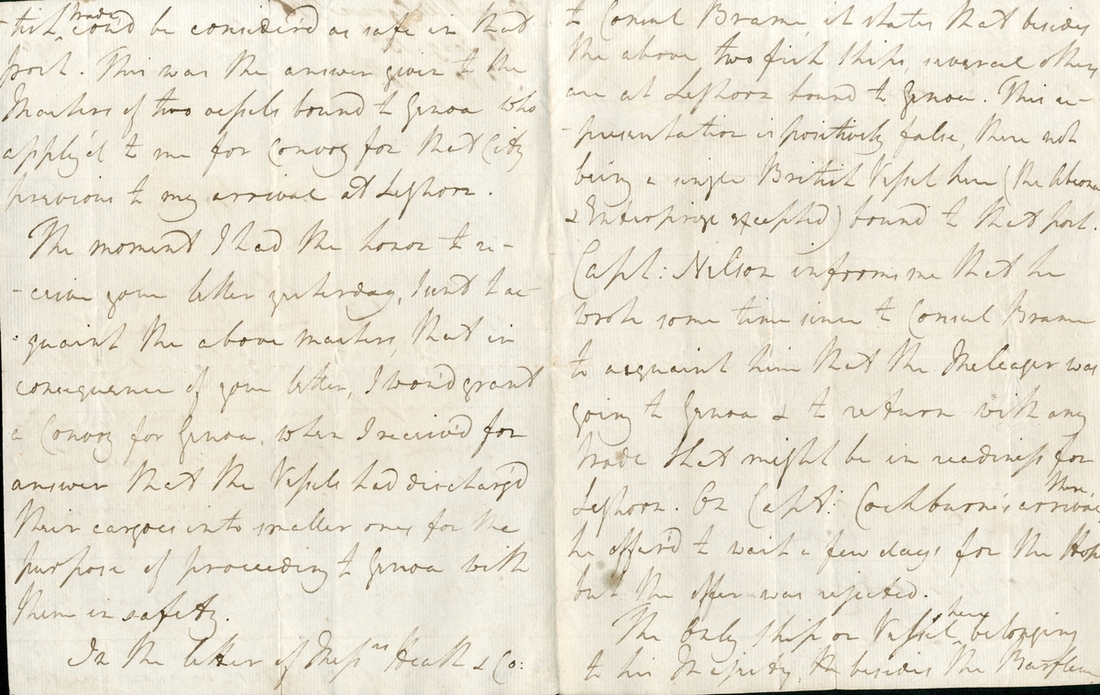 tish trade cou'd be consider'd as safe in that
port. This was the answer given to the
Masters of two vessels bound to Genoa who
apply'd to me for Convoy for that City
previous to my arrival at Leghorn.
The moment I had the honor to re-
-ceive your letter yesterday, I sent to ac-
-quaint the above masters, that in
consequence of your letter, I wou'd grant
a Convoy for Genoa, when I receiv'd for
answer that the Vessels had discharg'd
their cargoes into smaller ones for the
purpose of proceeding to Genoa with
them in safety.
In the letter of Messrs Heath & Co:
to Consul Brame, it states that besides
the above two fish ships, several others
are at Leghorn bound to Genoa. This re-
-presentation is positively false, there not
being a single British Vessel here (the
& Enterprize excepted) bound to that port.
Capt: Nelson informs me that he
wrote some time since to Consul Brame
to acquaint him that the Meleager was
going to Genoa & to return with any
trade that might be in readiness for
Leghorn. On Capt: Cockburn's arrival there,
he offer'd to wait a few days for the
but the offer was rejected.
The only ship or Vessel here belonging
to his Majesty, besides the